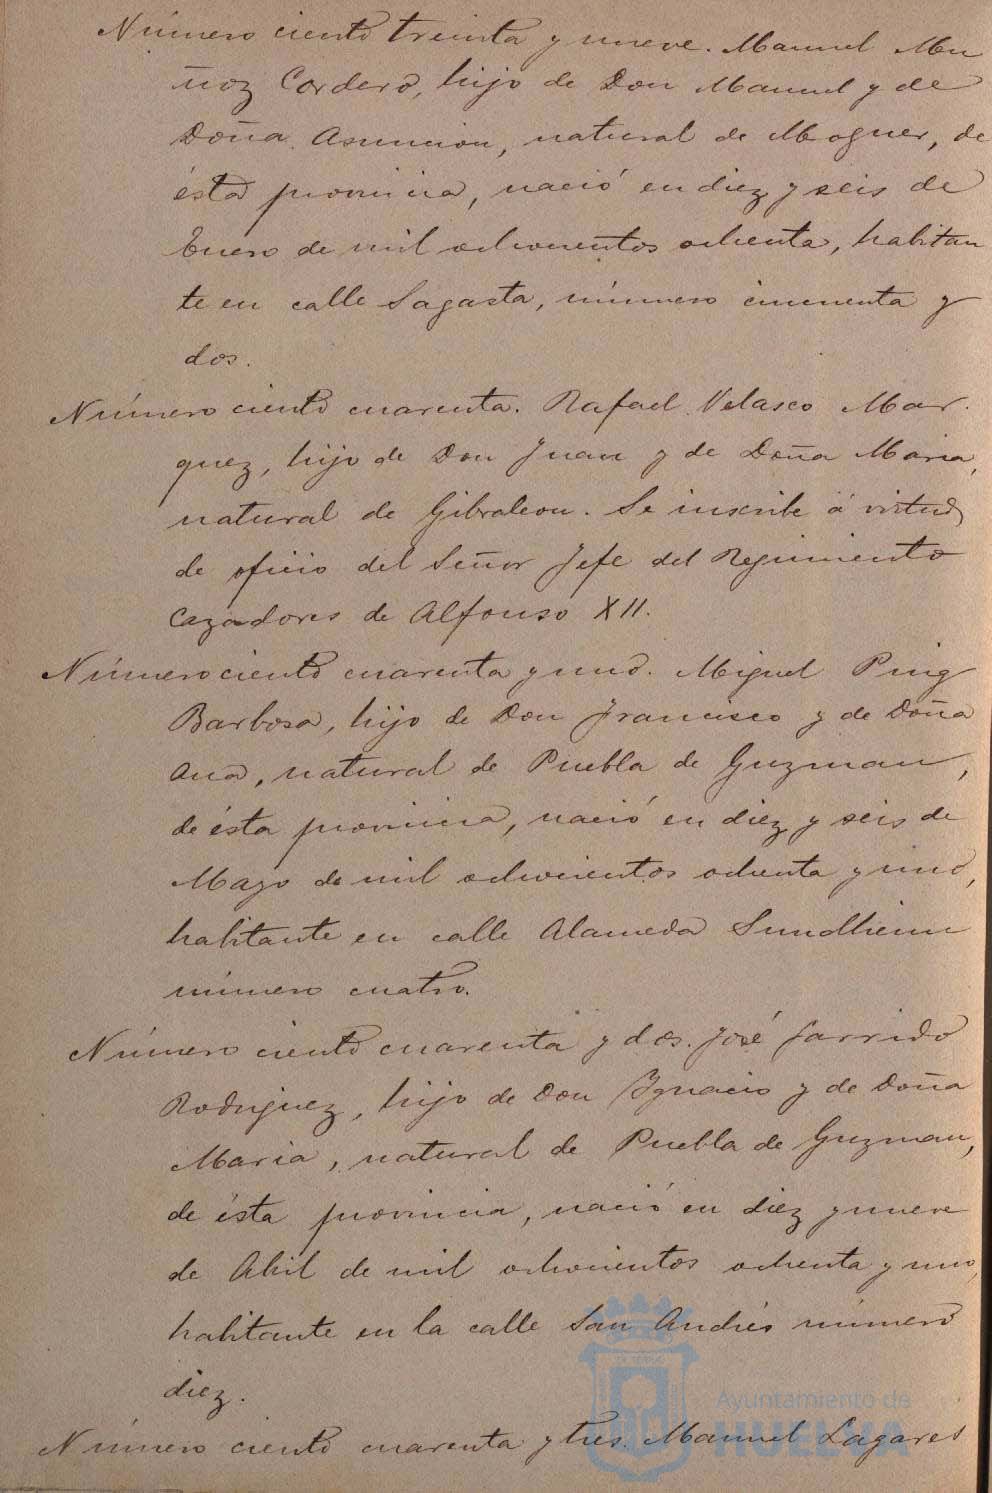 Número ciento treinta y nueve. Manuel Mu
ñoz Cordero, hijo de Don Manuel y de
Doña Asuncion, natural de Moguer, de
ésta provincia, nació en diez y seis de
Enero de mil ochocientos ochenta, habitan
te en calle Sagasta, número cincuenta y
dos.
Número ciento cuarenta. Rafael Velasco Mar
quez, hijo de Don Juan y de Doña Maria,
natural de Gibraleon. Se inscribe á virtud
de oficio del Señor Jefe del Regimiento
Cazadores de Alfonso XII.
Número ciento cuarenta y uno. Miguel Puig
Barbosa, hijo de Don Francisco y de Doña
Ana, natural de Puebla de Guzman,
de ésta provincia, nació en diez y seis de
Mayo de mil ochocientos ochenta y uno,
habitante en calle Alameda Sundheim
número cuatro.
Número ciento cuarenta y dos. José Garrido
Rodriguez, hijo de Don Ignacio y de Doña
Maria, natural de Puebla de Guzman,
de ésta provincia, nació en diez y nueve
de Abril de mil ochocientos ochenta y uno,
habitante en la calle San Andrés número
diez.
Número ciento cuarenta y tres. Manuel Lagares
Ayuntamiento de
HUELVA